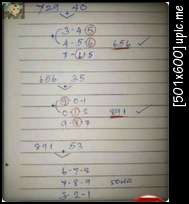 729 40
3-4-5
4-5-6 656
7-6-5
656 25
9-0-1
0-1-2 891
9-8-7
891 53
6-7-8
7-8-9
3-2-1
[501x600] uplc.me